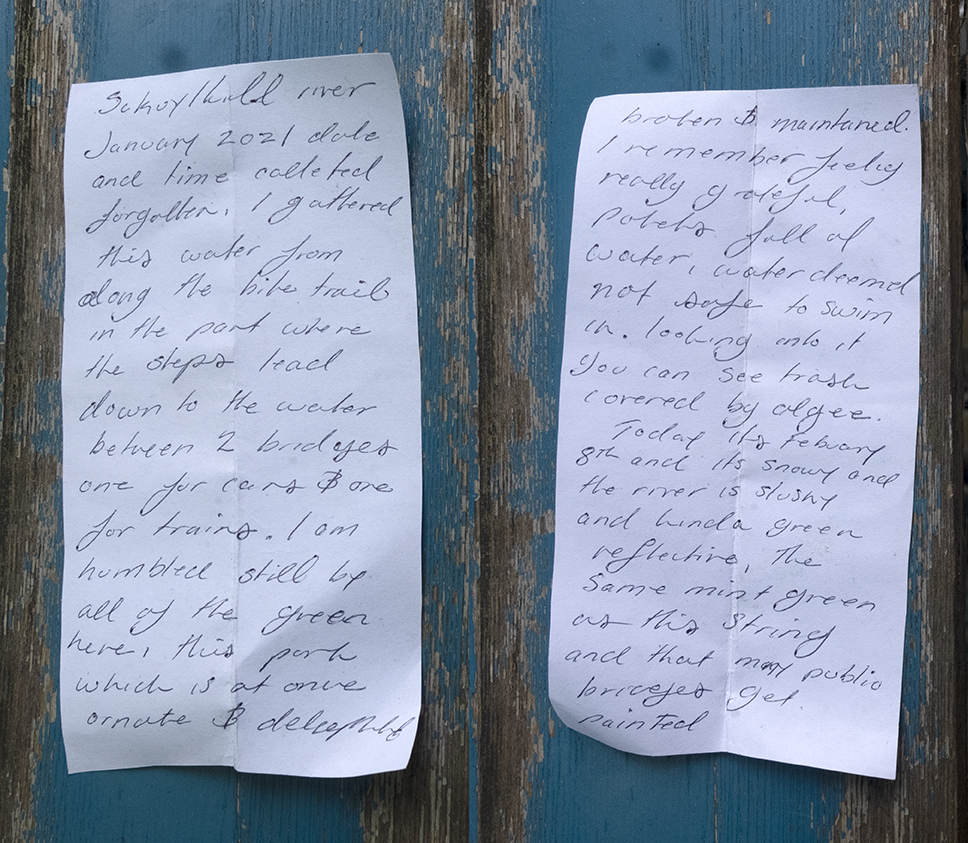 river
January 2021 date
and time colleted
forgotten, I gathered
this water from
along the bike trail
in the part where
the steps lead
down to the water
between 2 bridges
one for cars & one
for trains. I am
humbled still by
all of the green
here, this park
which is at once
ornate &
broken & maintaned.
I remember feelig
really grateful,
full of
water, water deemed
not safe to swim
in. looking into it
you can see trash
covered by algee.
Today its Febuary
8th and its snowy and
the river is slushy
and kinda green
reflective, the
same mint green
as this string
and that many public
bridges get
painted